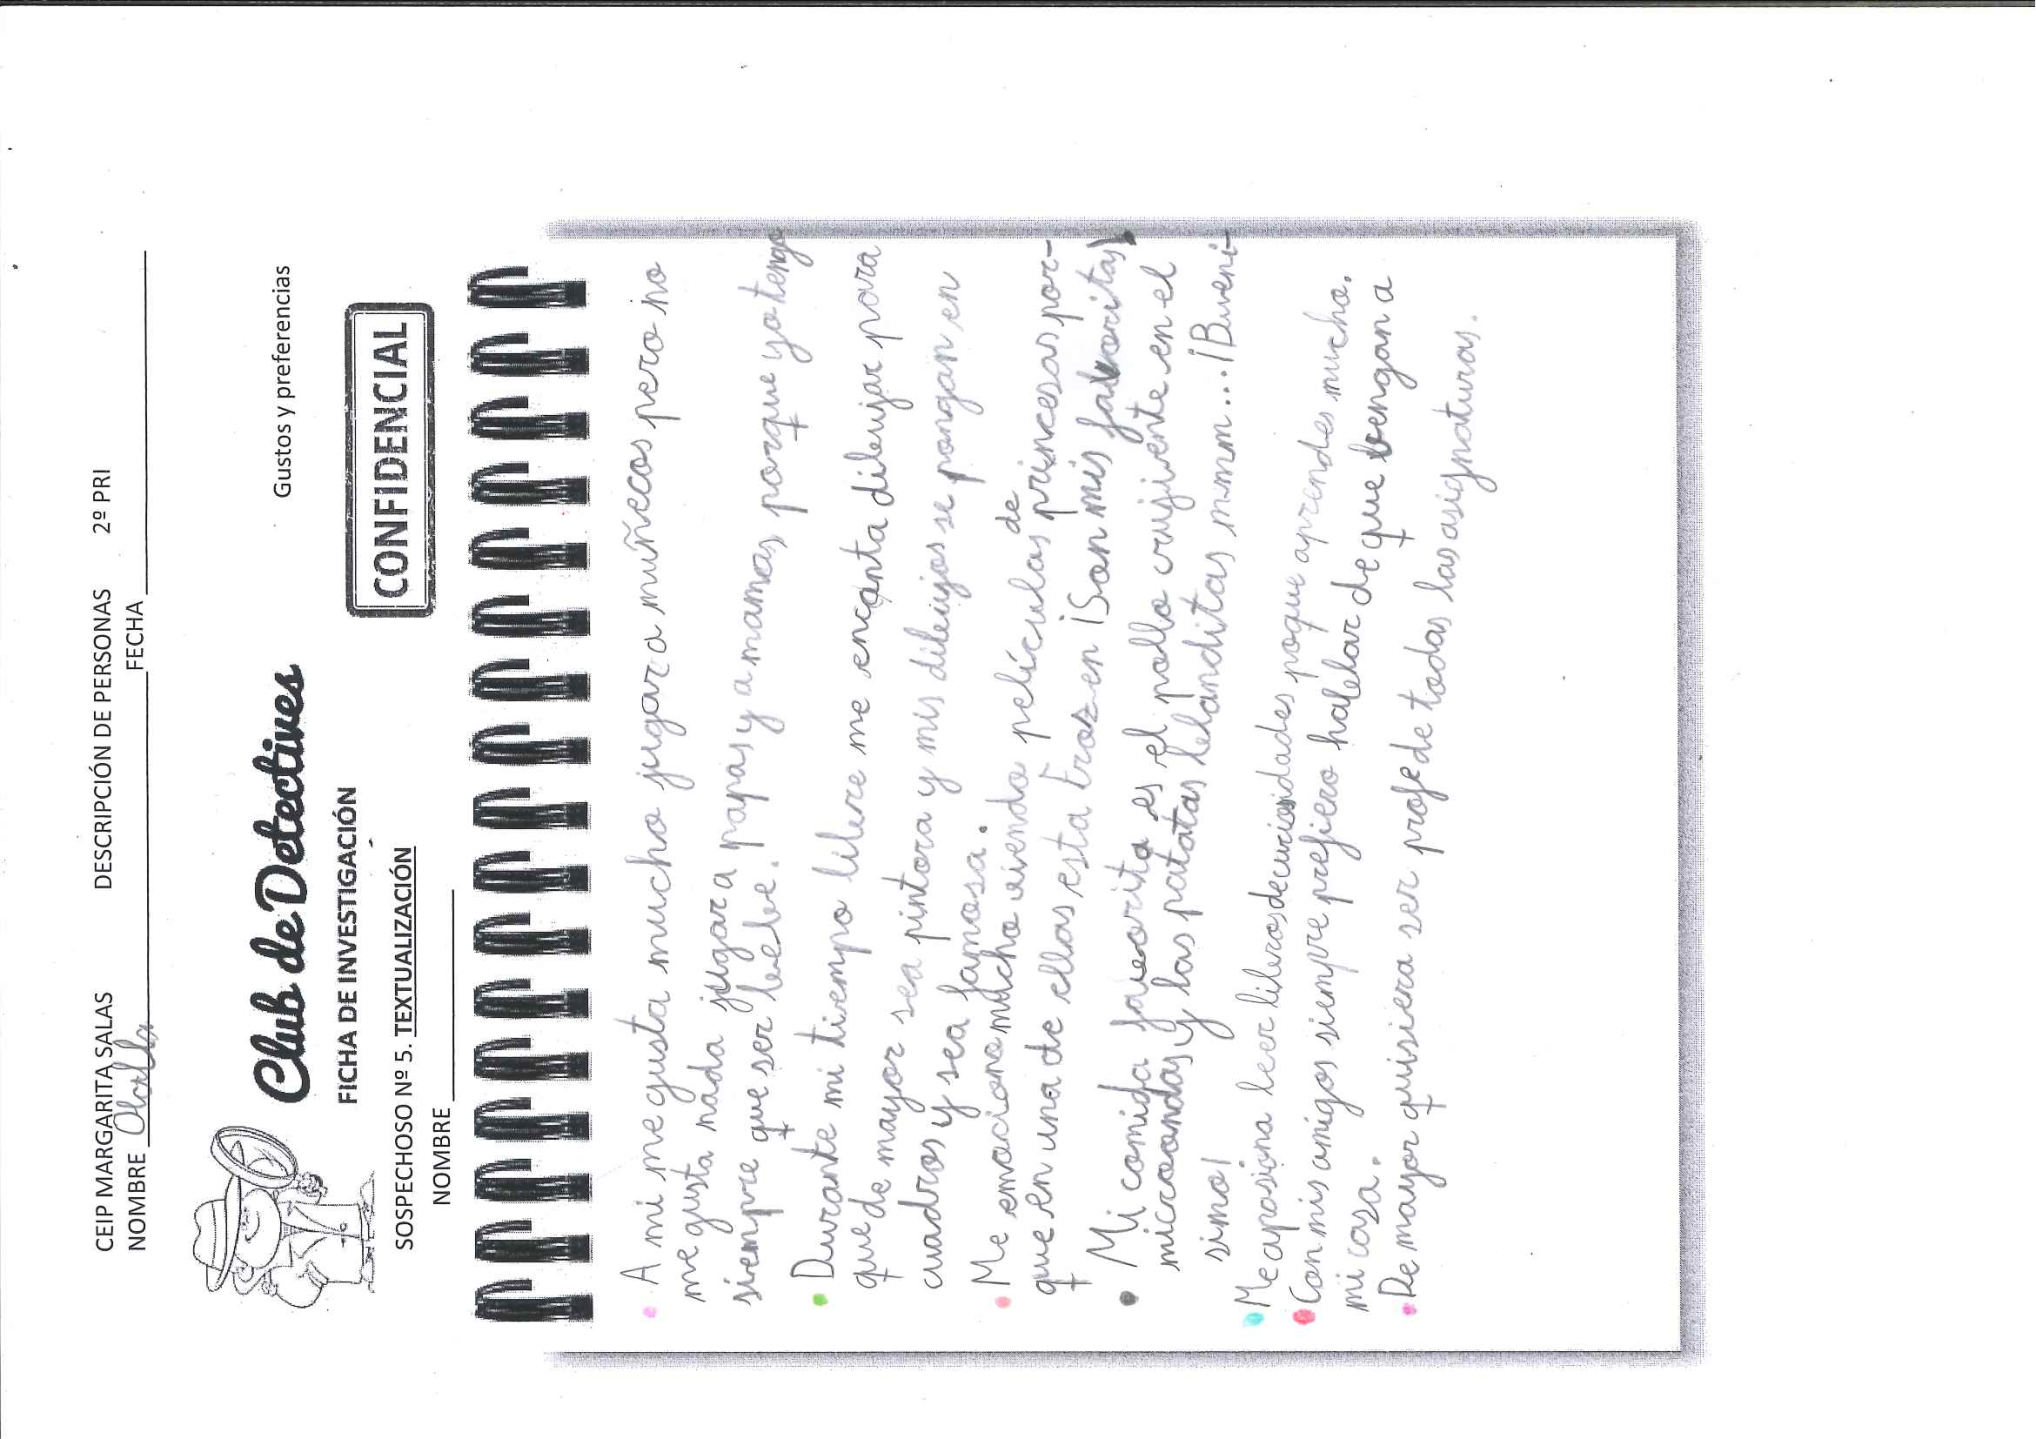 CEIP MARGARITA SALAS DESCRIPCIÓN DE PERSONAS 2º PRI
NOMBRE FECHA
Club de Detectives
Gustos y preferencias
FICHA DE INVESTIGACIÓN
CONFIDENCIAL
SOSPECHOSO Nº 5. TEXTUALIZACIÓN
NOMBRE
A mi me gusta mucho jugar a muñecos pero no
me gusta nada jugar a papas y a mamas, porque yo tengo
siempre que ser bebe.
Durante mi tiempo libre me encanta dibujar para
que de mayor sea pintora y mis dibujos se pongan en
cuadros y sea famosa.
Me emociono mucho viendo películas de princesas por-
que en una de ellas esta Frozen ¡Son mis favoritas!
Mi comida favorita es el pollo crujiente en el
microondas y las patatas blanditas mmm...¡Buveni-
simo!
Me apasiona leer libros de curiosidades poque aprendes mucho.
Con mis amigos siempre prefiero hablar de que vengan a
mi casa.
De mayor quisiera ser profe de todas las asignaturas.